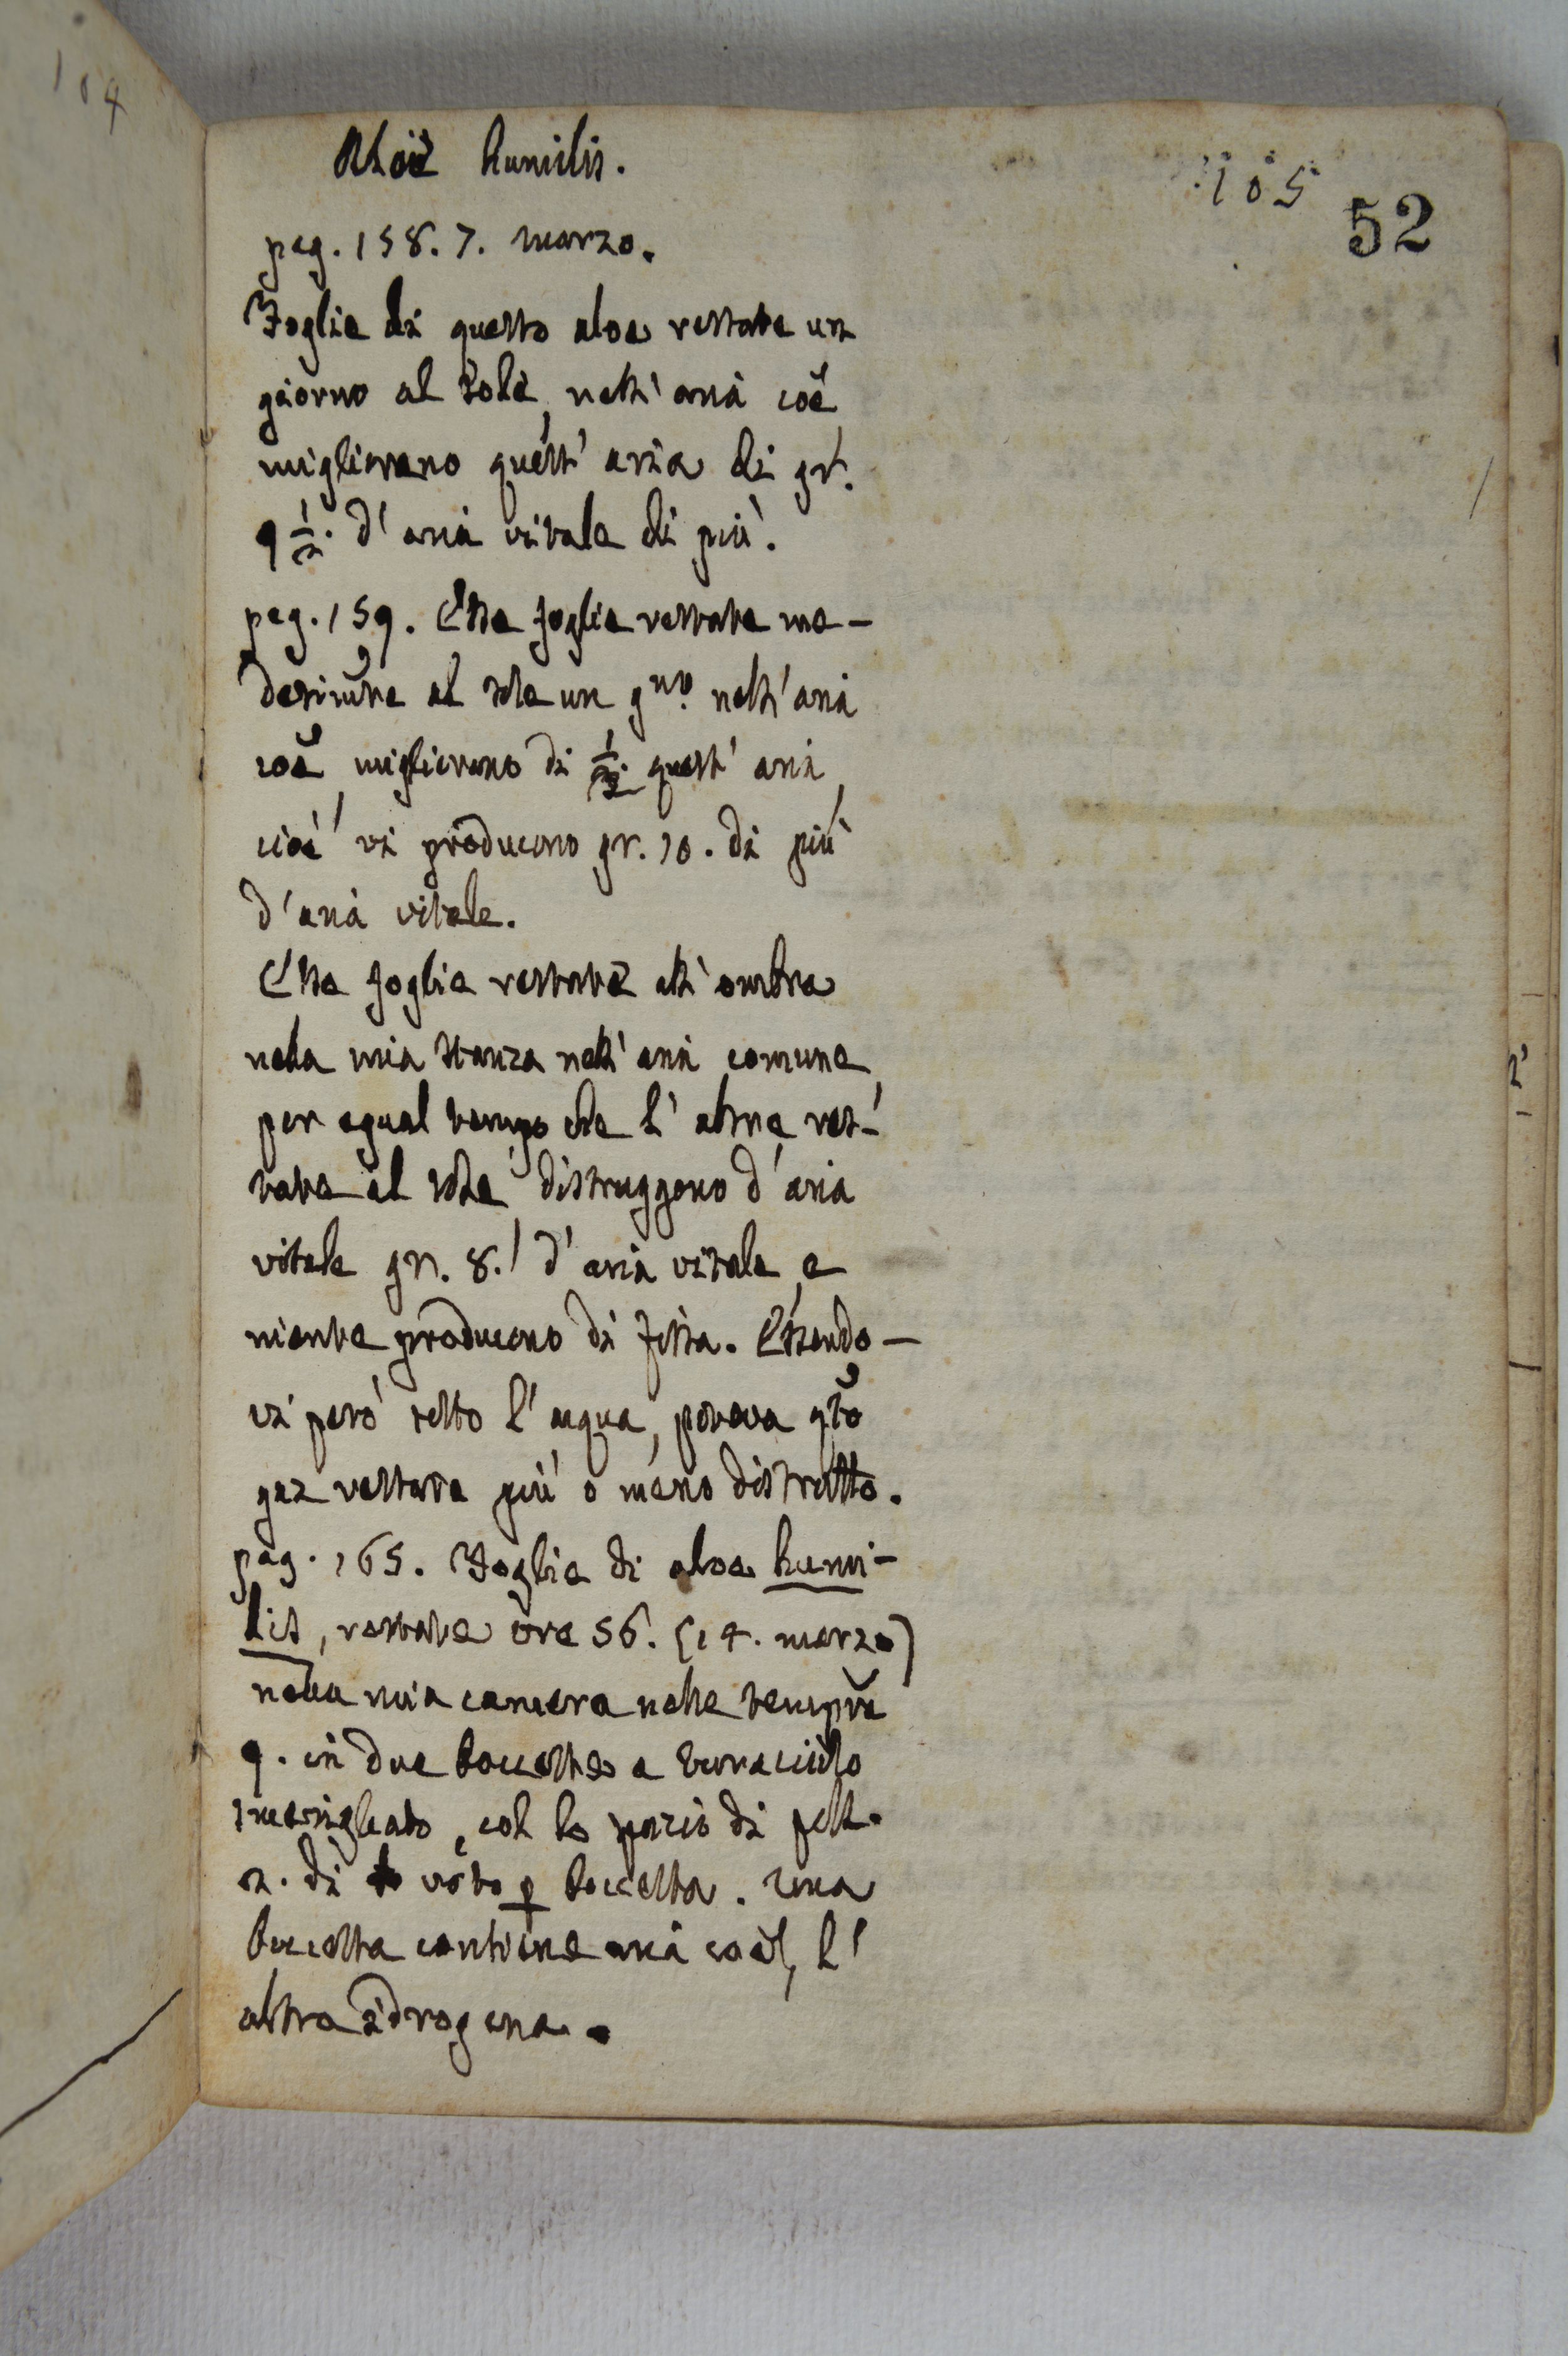 104
105
52
Aloè humilis.
pag. 158. 7. marzo.
Foglie di questo aloe restate un
giorno al sole, nell'aria coe
migliorano quest'aria di gr.
9 1/2. d'aria vitale di più.
pag. 159. Esse foglie restate me-
desimte al sole un gno. nell'aria
coe, migliorano di 1/2. quest'aria,
cioè vi producono gr. 10. di più
d'aria vitale.
Esse foglie restate all'ombra
nella mia stanza nell'aria comune,
per egual tempo che l'altre res-
tate al sole distruggono d'aria
vitale gr. 8. d'aria vitale, e
niente producono di fissa. Essendo-
vi però sotto l'acqua, poteva qto
gaz restare più o meno distrutto.
pag. 165. Foglie di aloe humi-
lis, restate ore 56. (14. marzo)
nella mia camera nelle tempre
9. in due boccette a turacciolo
smerigliato, col lo spazio di poll.
2. di voto p boccetta. Una
boccetta contiene aria coe, l'
altra idrogena.